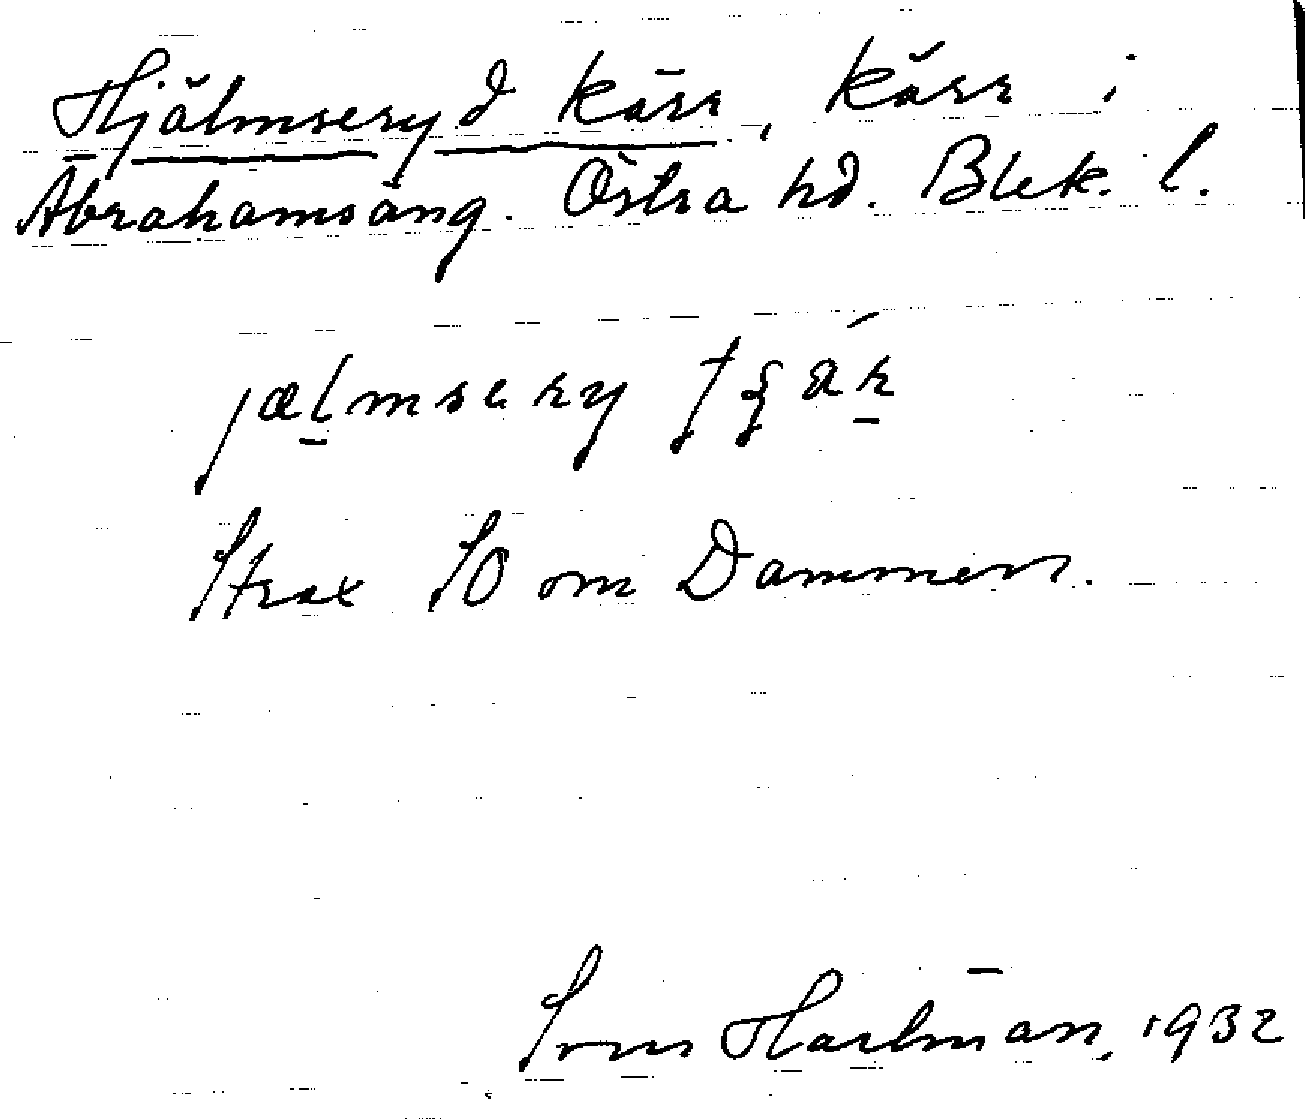 Hjälmseryd kärr, kärr i
Abrahamsäng. Östra hd. Blek. l.
jælmsery
Strax SO om Dammen.
Hartman, 1932